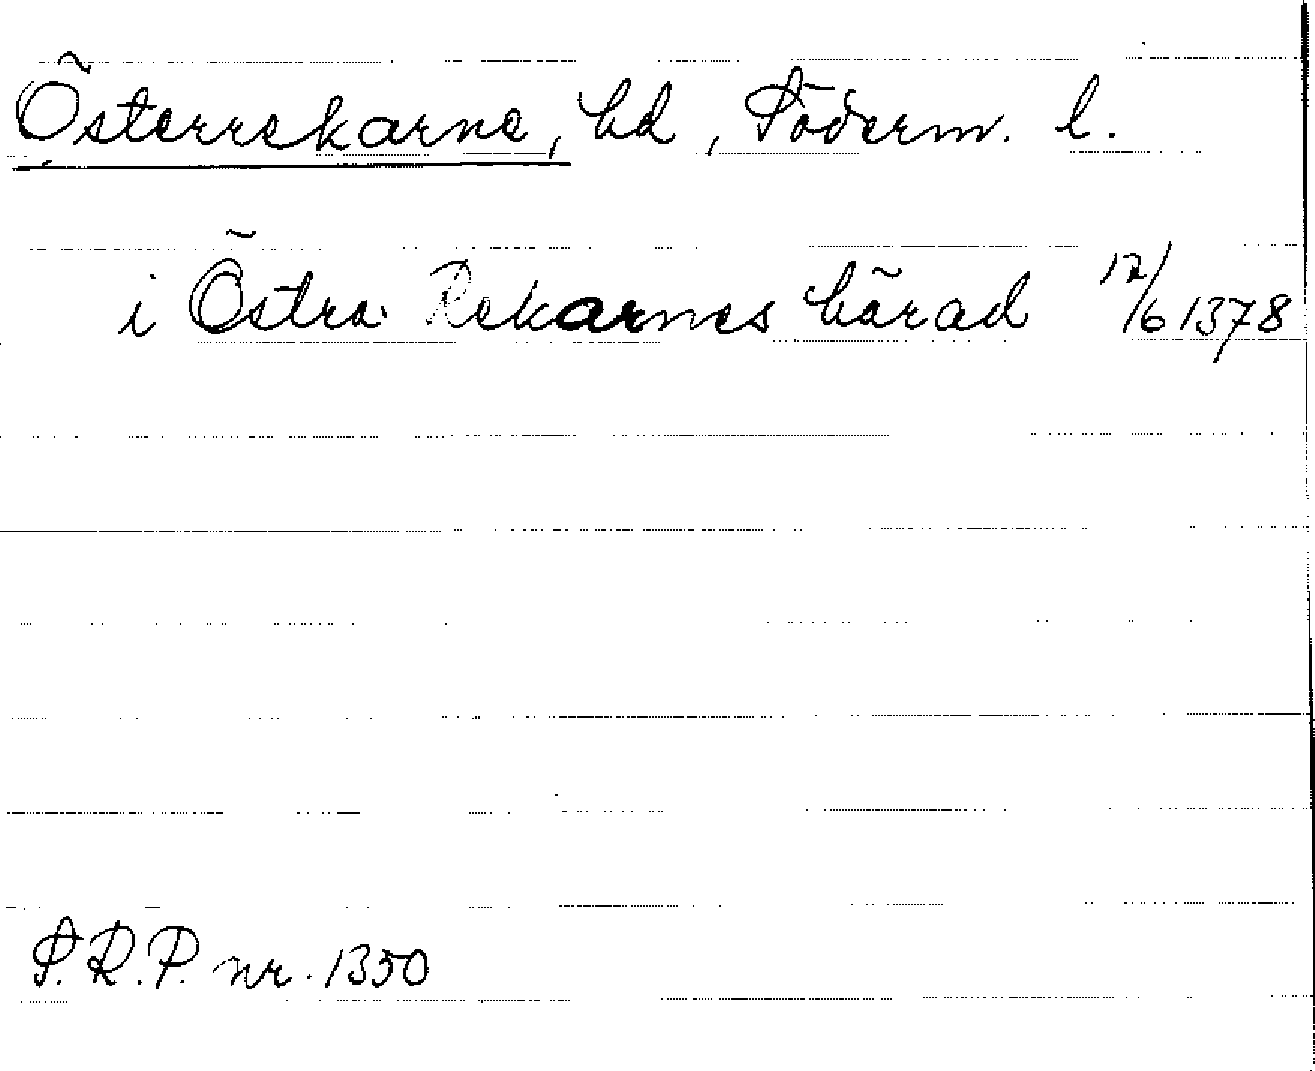 Österrekarne, hd, Söderm. l.
i Östra Rekarnes härad 12/6 1378
S.R.P. nr. 1350